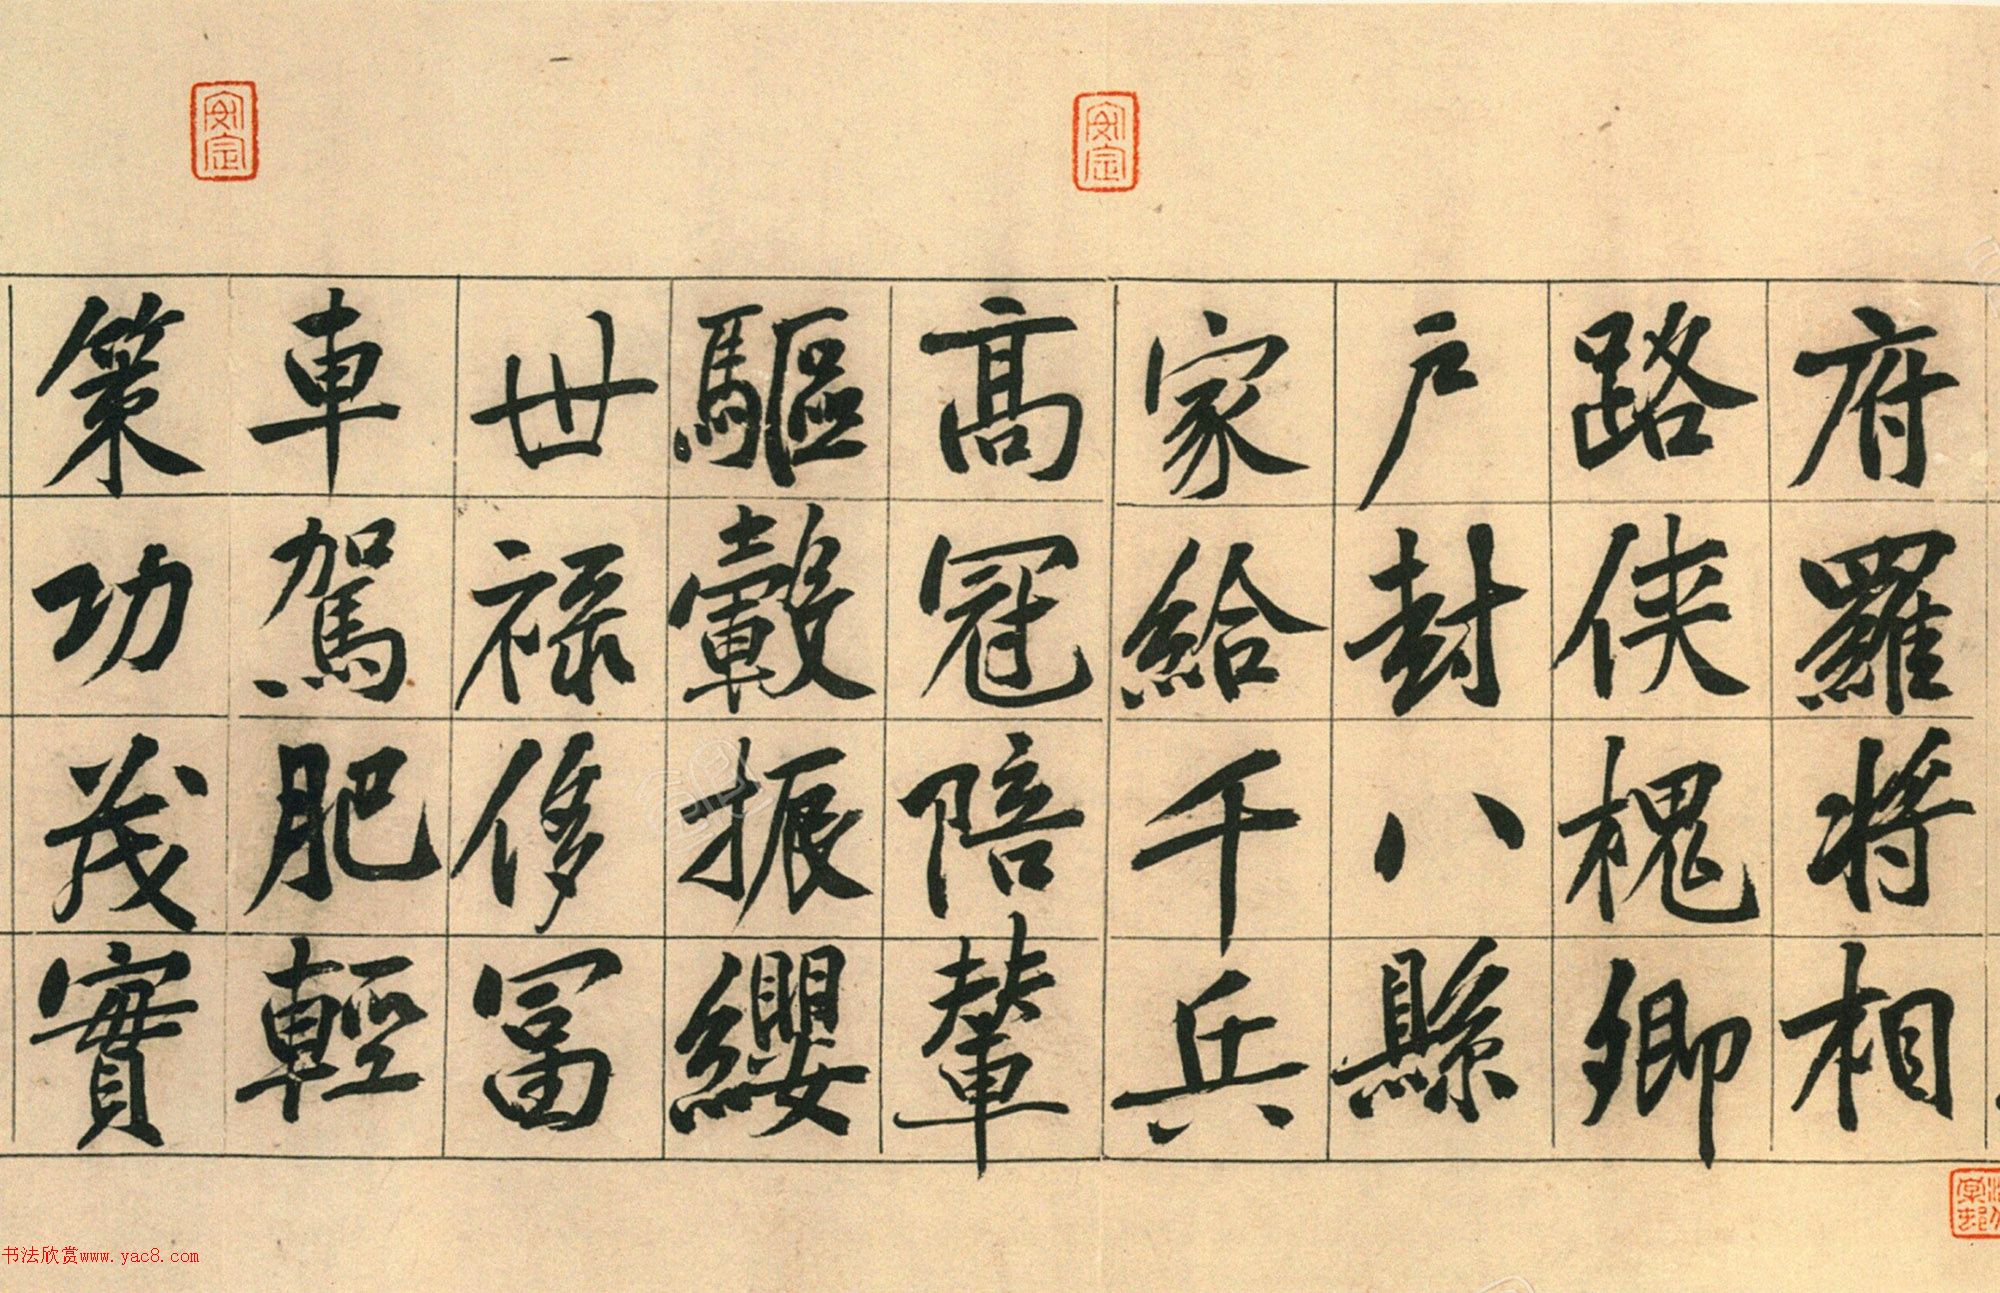 府羅將相
路俠槐卿
户封八縣
家給千兵
高冠陪輦
驅轂振纓
世禄侈富
車駕肥輕
策功茂實
安定
安定
书法欣赏www.yac8.com